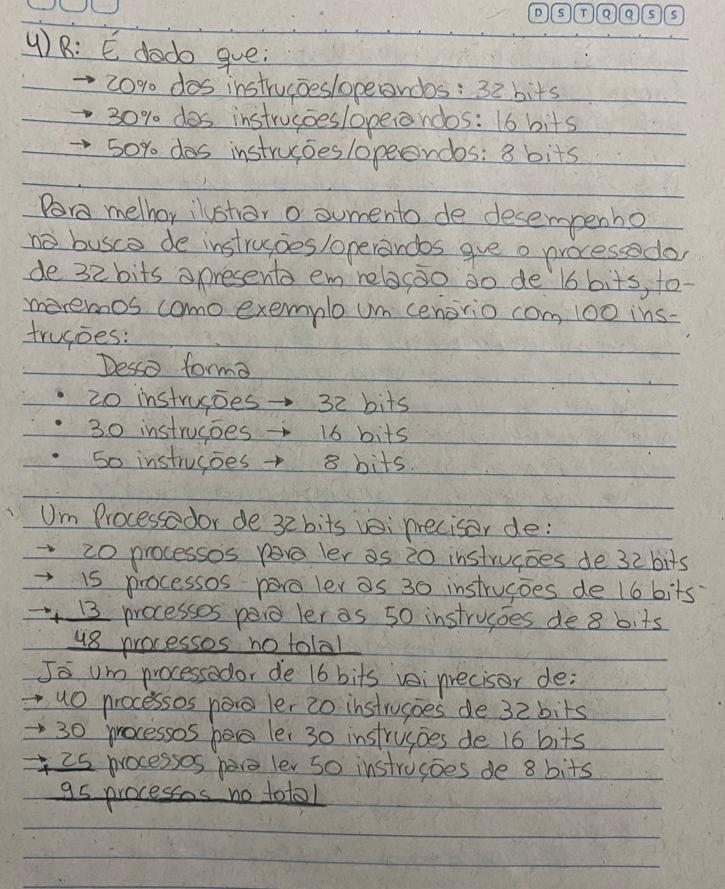 D S T Q Q S S
4) R: É dado que:
→ 20% das instruções/operandos: 32 bits
→ 30% das instruções/operandos: 16 bits
→ 50% das instruções/operandos: 8 bits
Para melhor ilustrar o aumento de desempenho
na busca de instruções/operandos que o processador
de 32 bits apresenta em relação ao de 16 bits, to-
maremos como exemplo um cenário com 100 ins-
truções:
Dessa forma
• 20 instruções → 32 bits
• 30 instruções → 16 bits
• 50 instruções → 8 bits.
Um Processador de 32 bits vai precisar de:
→ 20 processos para ler as 20 instruções de 32 bits
→ 15 processos para ler as 30 instruções de 16 bits
→+ 13 processos para ler as 50 instruções de 8 bits
48 processos no total
Já um processador de 16 bits vai precisar de:
→ 40 processos para ler 20 instruções de 32 bits
→ 30 processos para ler 30 instruções de 16 bits
→+ 25 processos para ler 50 instruções de 8 bits
95 processos no total